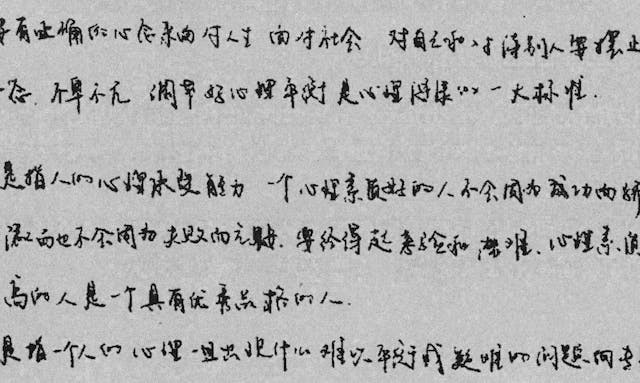 有正确的心态来面对人生 面对社会 对自己和对待别人要摆正
态 不卑不亢 调节好心理平衡是心理健康的一大标准.
是指人的心理承受能力 一个心理素质好的人不会因为成功而骄
而也不会因为失败而 要经得起考验和磨难、心理素质
高的人是一个具有优秀品格的人.
是指一个人的心理一旦出现什么难以平衡或疑难的问题向专